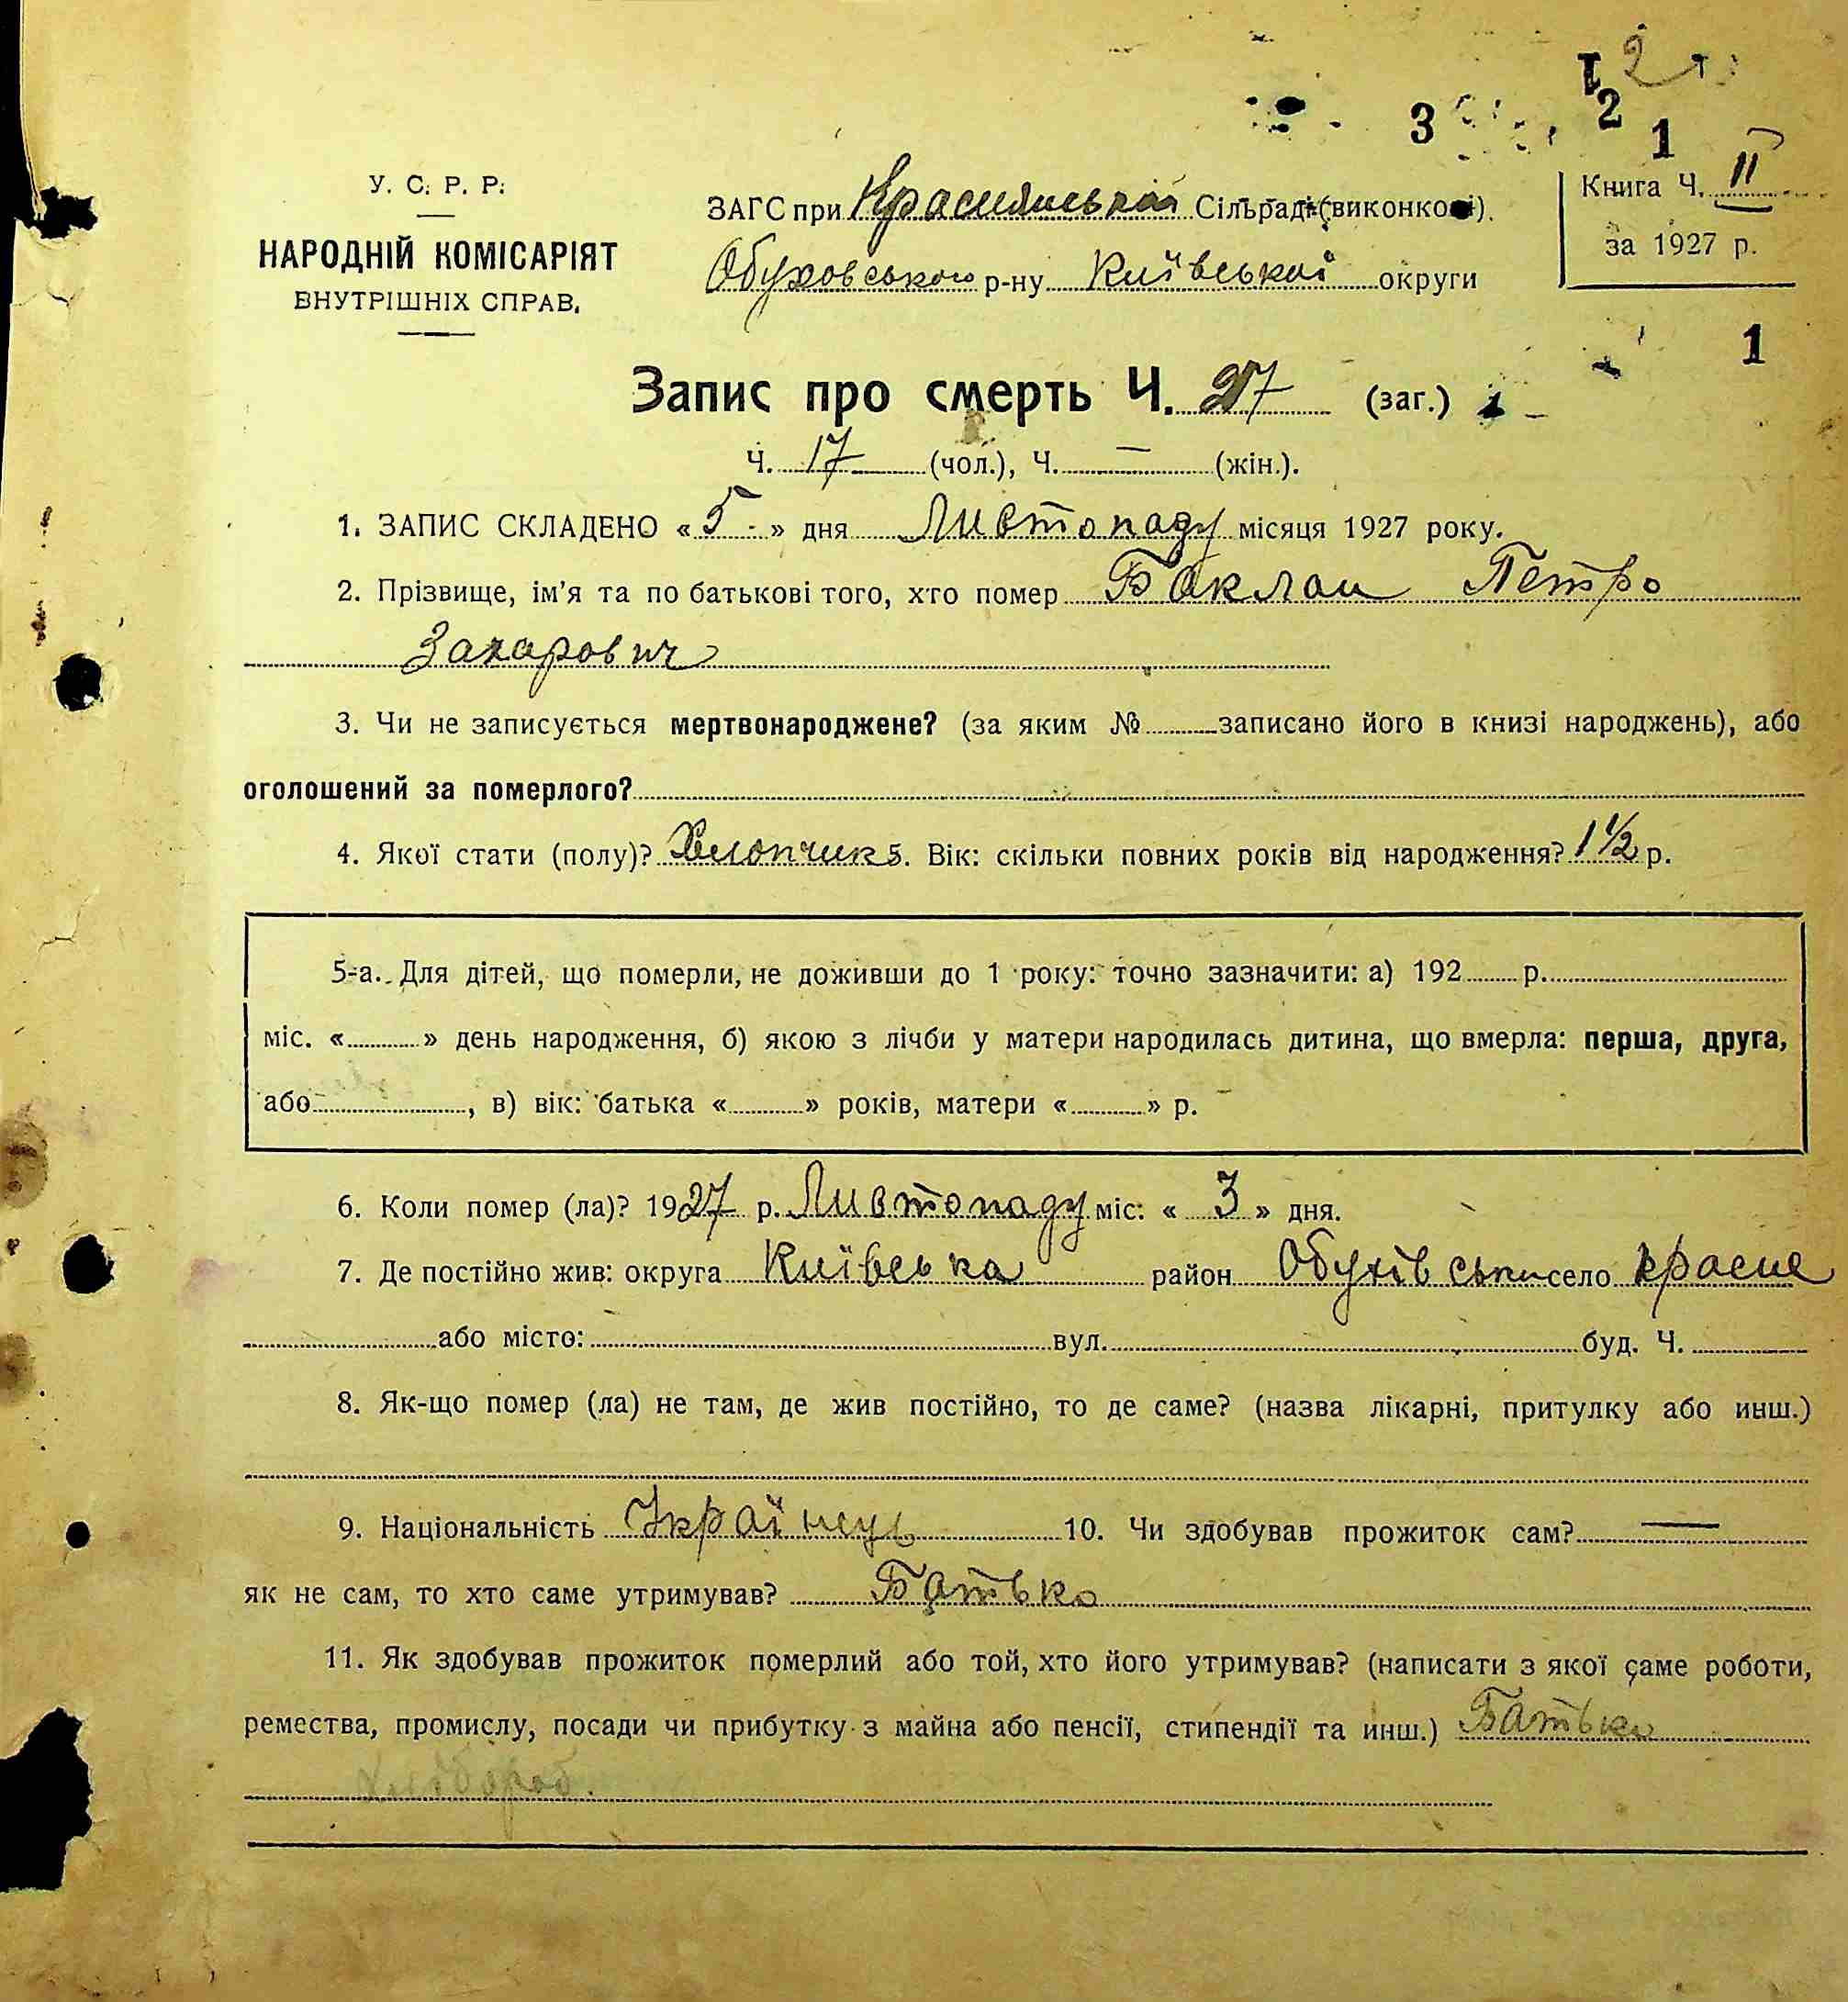 2
3 2 1
У. С. Р. Р.
НАРОДНІЙ КОМІСАРІЯТ
ВНУТРІШНІХ СПРАВ.
ЗАГС при Краснянській Сільраді (виконкомі).
Обуховського р-ну Київської округи
Книга Ч. II
за 1927 р.
1
Запис про смерть Ч. 27 (заг.)
Ч. 17 (чол.), Ч. — (жін.).
1. ЗАПИС СКЛАДЕНО « 5 » дня Листопаду місяця 1927 року.
2. Прізвище, ім'я та по батькові того, хто помер Баклан Петро
Захарович
3. Чи не записується мертвонароджене? (за яким № записано його в книзі народжень), або
оголошений за померлого?
4. Якої стати (полу)? Хлопчик 5. Вік: скільки повних років від народження? 1 1/2 р.
5-а. Для дітей, що померли, не доживши до 1 року: точно зазначити: а) 192 р.
міс. « » день народження, б) якою з лічби у матери народилась дитина, що вмерла: перша, друга,
або , в) вік: батька « » років, матери « » р.
6. Коли помер (ла)? 1927 р. Листопаду міс: « 3 » дня.
7. Де постійно жив: округа Київська район Обухівськи село Красне
або місто: вул. буд. Ч.
8. Як-що помер (ла) не там, де жив постійно, то де саме? (назва лікарні, притулку або инш.)
9. Національність Українець 10. Чи здобував прожиток сам? —
як не сам, то хто саме утримував? Батько
11. Як здобував прожиток померлий або той, хто його утримував? (написати з якої саме роботи,
ремества, промислу, посади чи прибутку з майна або пенсії, стипендії та инш.) Батько
Хлібороб.